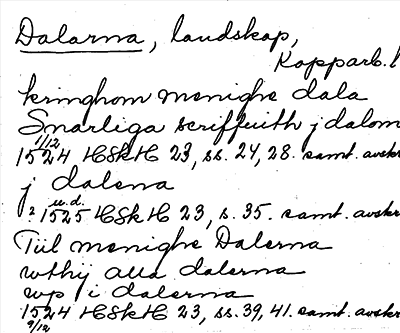 Dalarna, landskap,
Kopparb.l
kringhom menighe dala
Snarliga scriffuith j dalom
1/12
1524 HSkH 23, ss. 24, 28. samt. avskr
j dalena
u.d.
? 1525 HSkH 23, s. 35. samt. avskr
Tiil menighe Dalerna
wthij alla dalerna
wp i dalerna
1524 HSkH 23, ss. 39, 41. samt. avskr
9/12